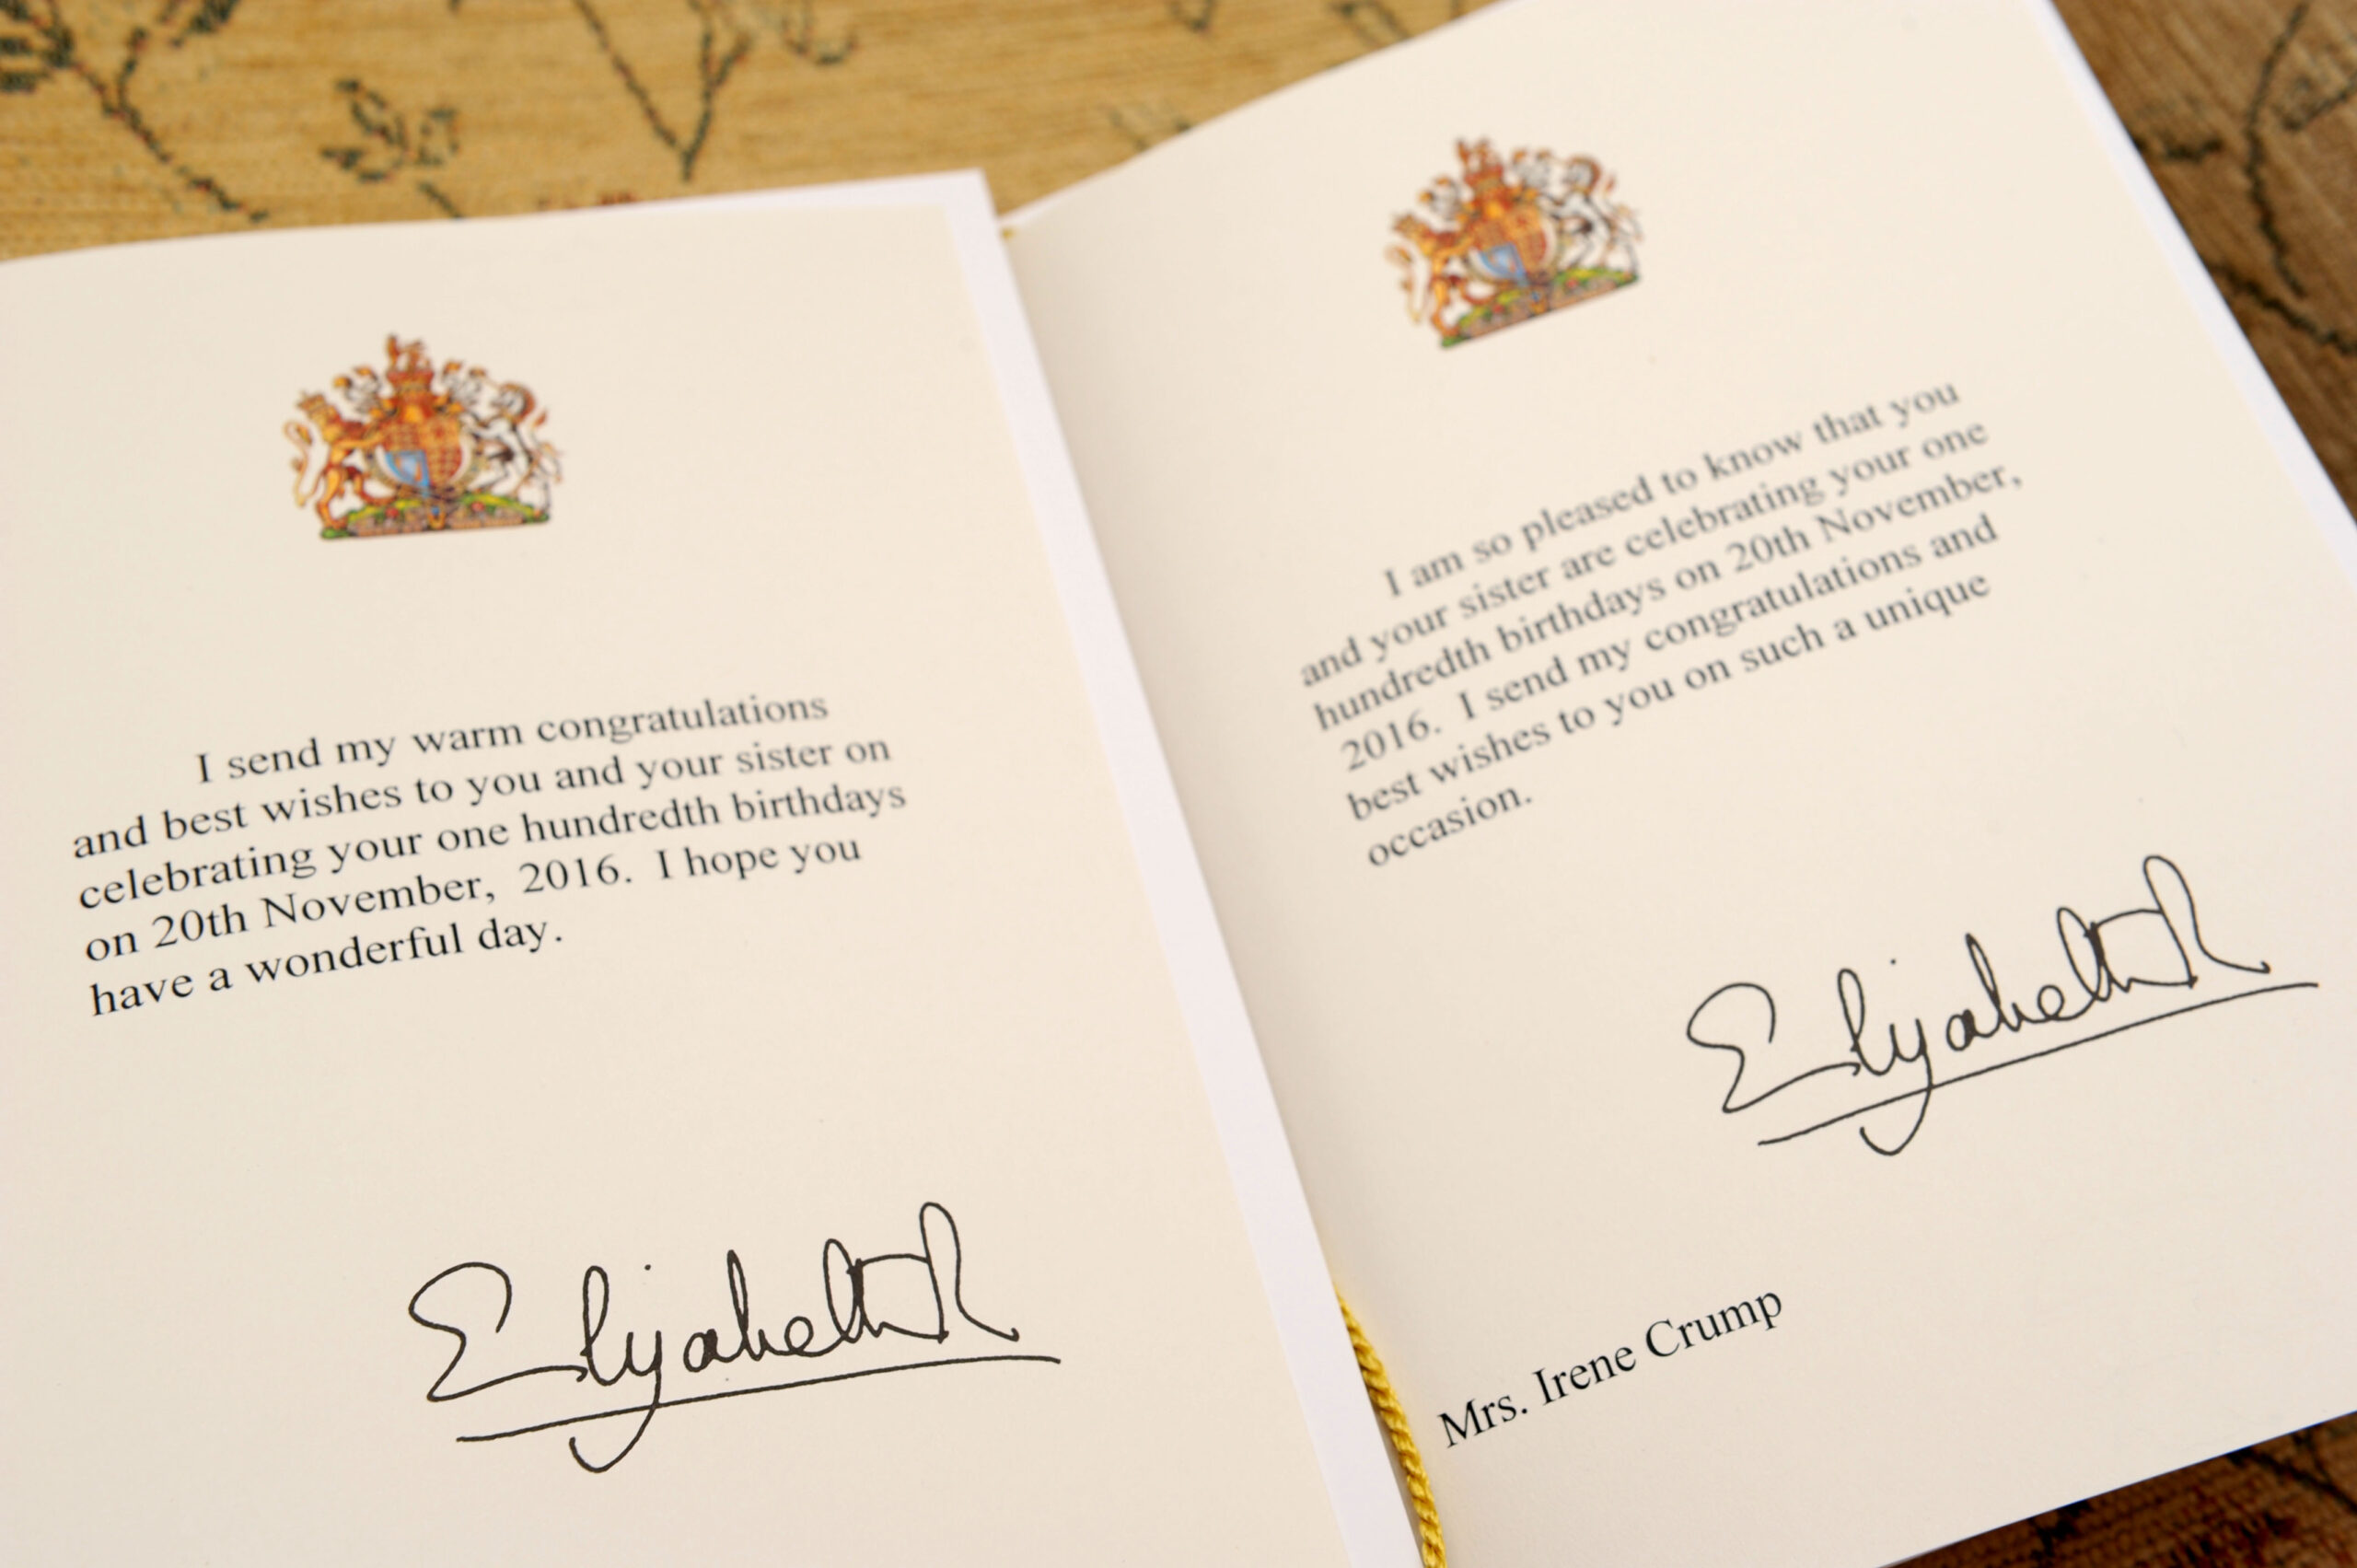 I send my warm congratulations
and best wishes to you and your sister on
celebrating your one hundredth birthdays
on 20th November, 2016. I hope you
have a wonderful day.
Elizabeth R
I am so pleased to know that you
and your sister are celebrating your one
hundredth birthdays on 20th November,
2016. I send my congratulations and
best wishes to you on such a unique
occasion.
Elizabeth R
Mrs. Irene Crump